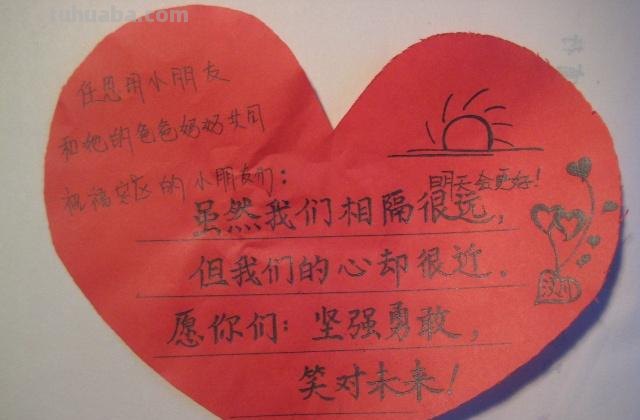 tuhuaba.com
任恩用小朋友
和她的爸爸妈妈共同
祝福灾区的小朋友们:
明天会更好!
虽然我们相隔很远,
但我们的心却很近.
愿你们:坚强勇敢,
笑对未来!
汶川